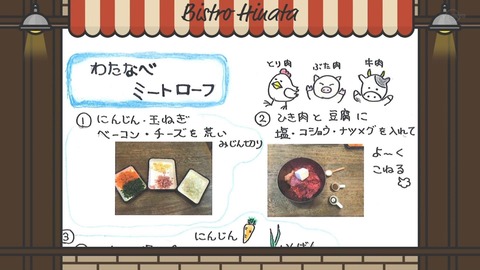 Bistro Hinata
わたなべ
ミートローフ
とり肉
ぶた肉
牛肉
① にんじん・玉ねぎ
ベーコン・チーズを荒い
みじん切り
② ひき肉と豆腐に
塩・コショウ・ナツメグを入れて
よ〜く
こねる
③
にんじん